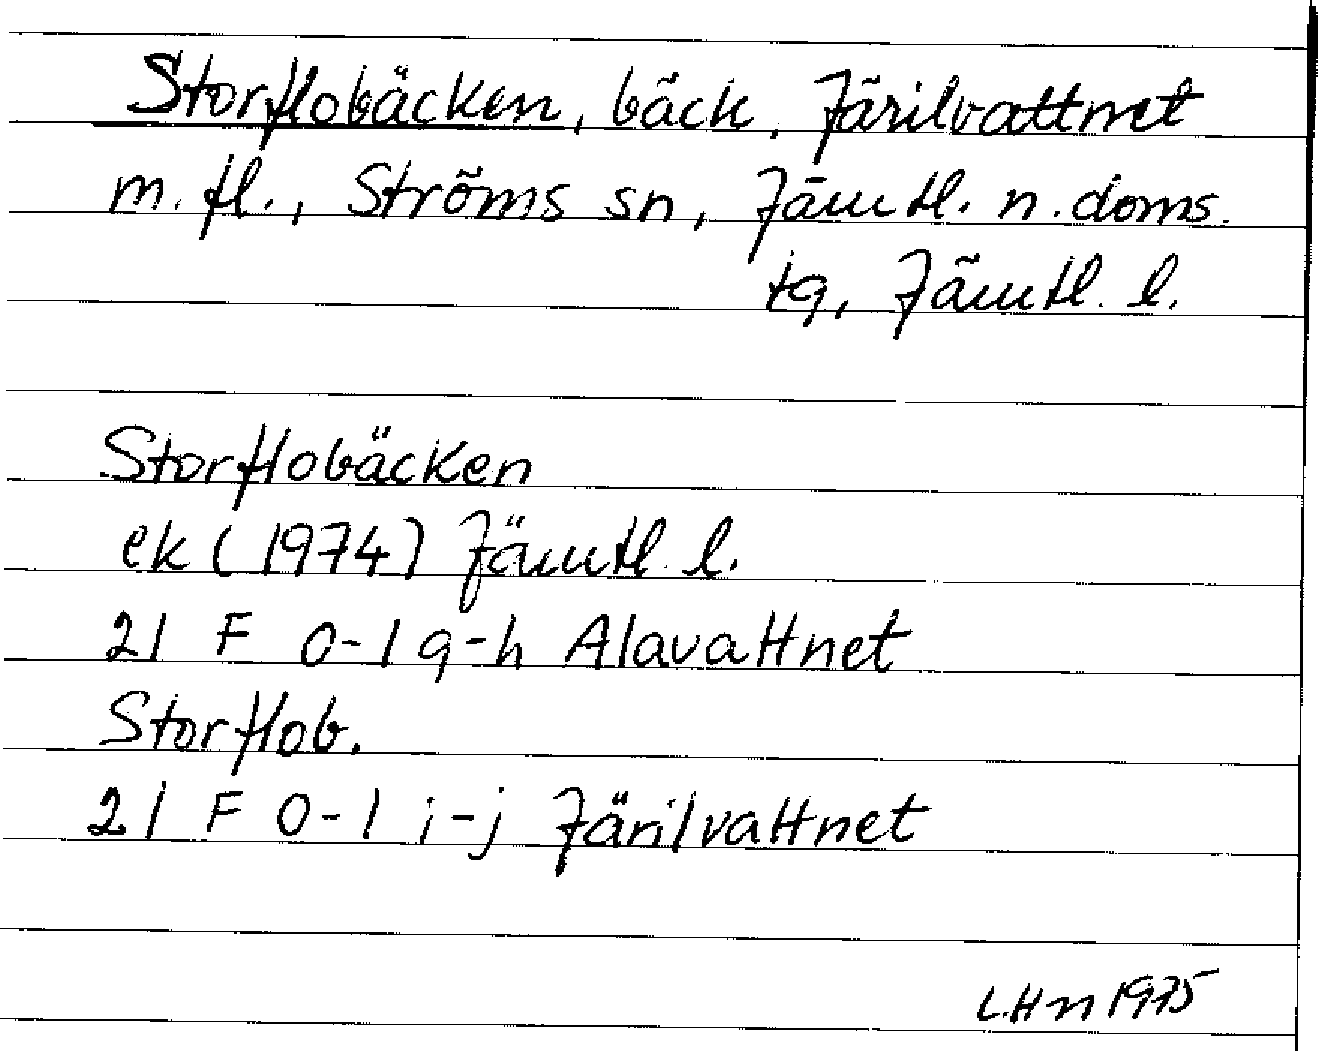 Storflobäcken, bäck, Järilvattnet
m. fl., Ströms sn, Jämtl. n. doms.
tg, Jämtl. l.
Storflobäcken
ek (1974) Jämtl. l.
21 F 0-1 g-h Alavattnet
Storflob.
21 F 0-1 i-j Järilvattnet
L.Hn 1975